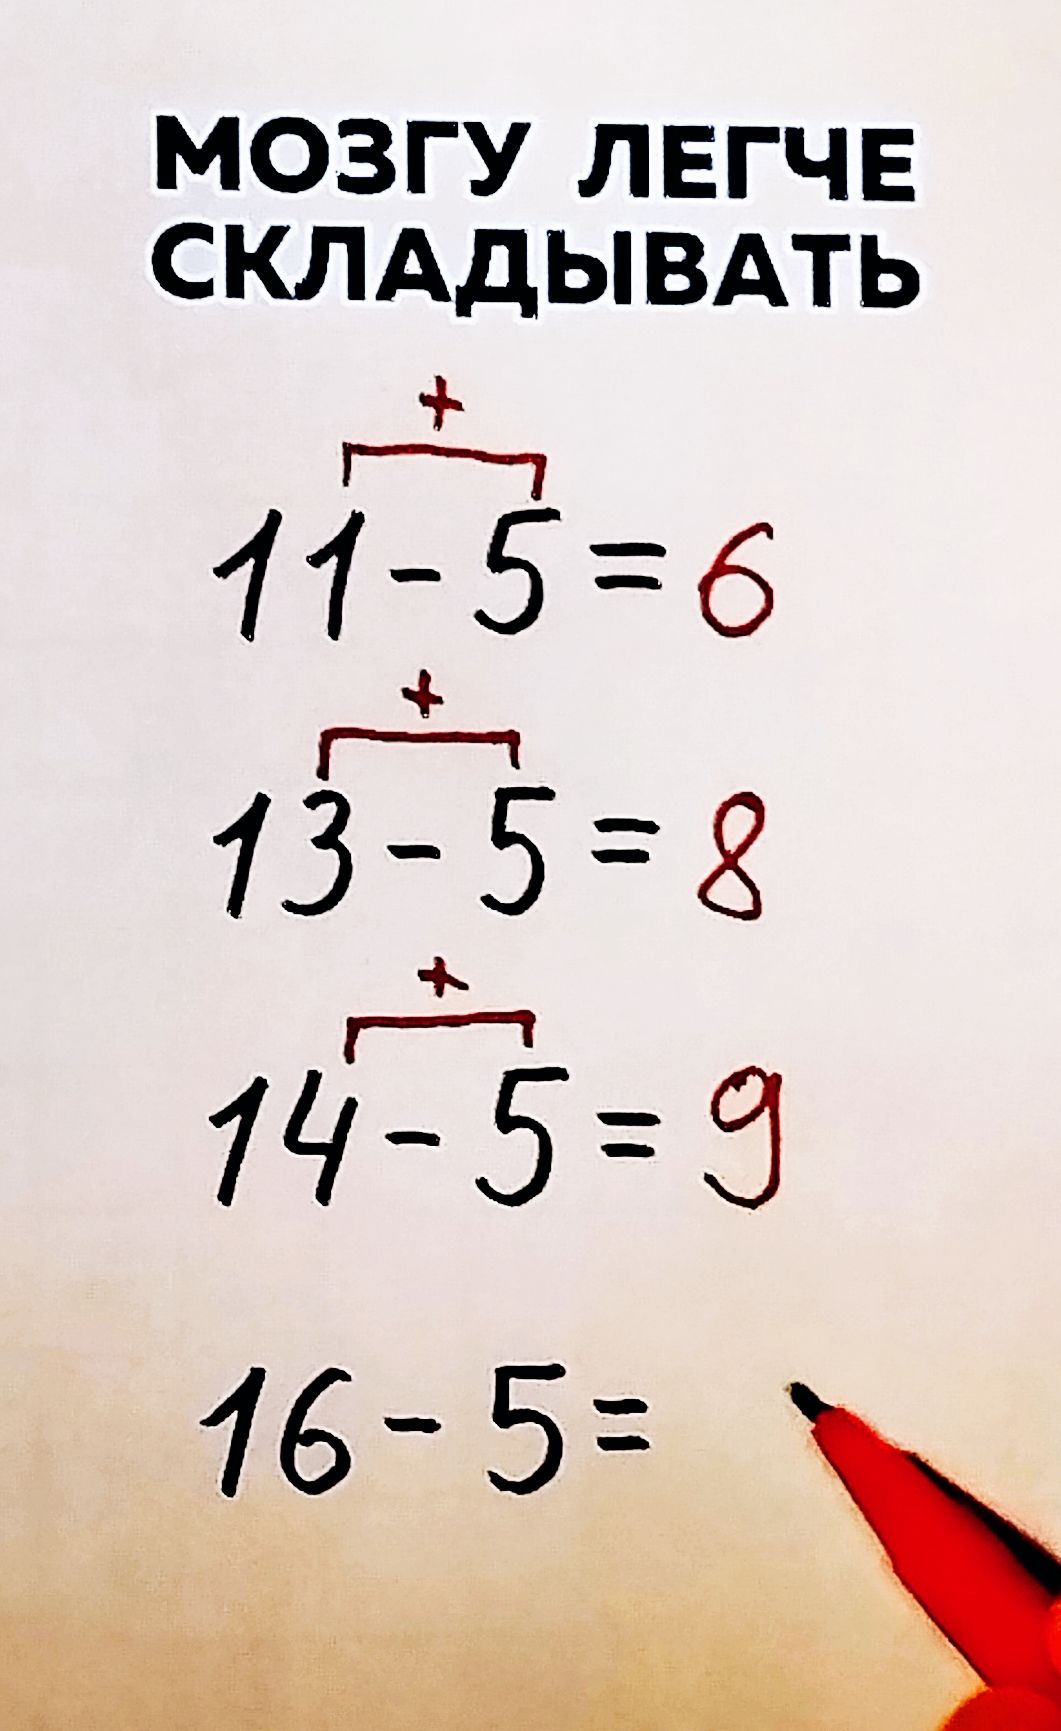 МОЗГУ ЛЕГЧЕ
СКЛАДЫВАТЬ
+
11 - 5 = 6
+
13 - 5 = 8
+
14 - 5 = 9
16 - 5 =